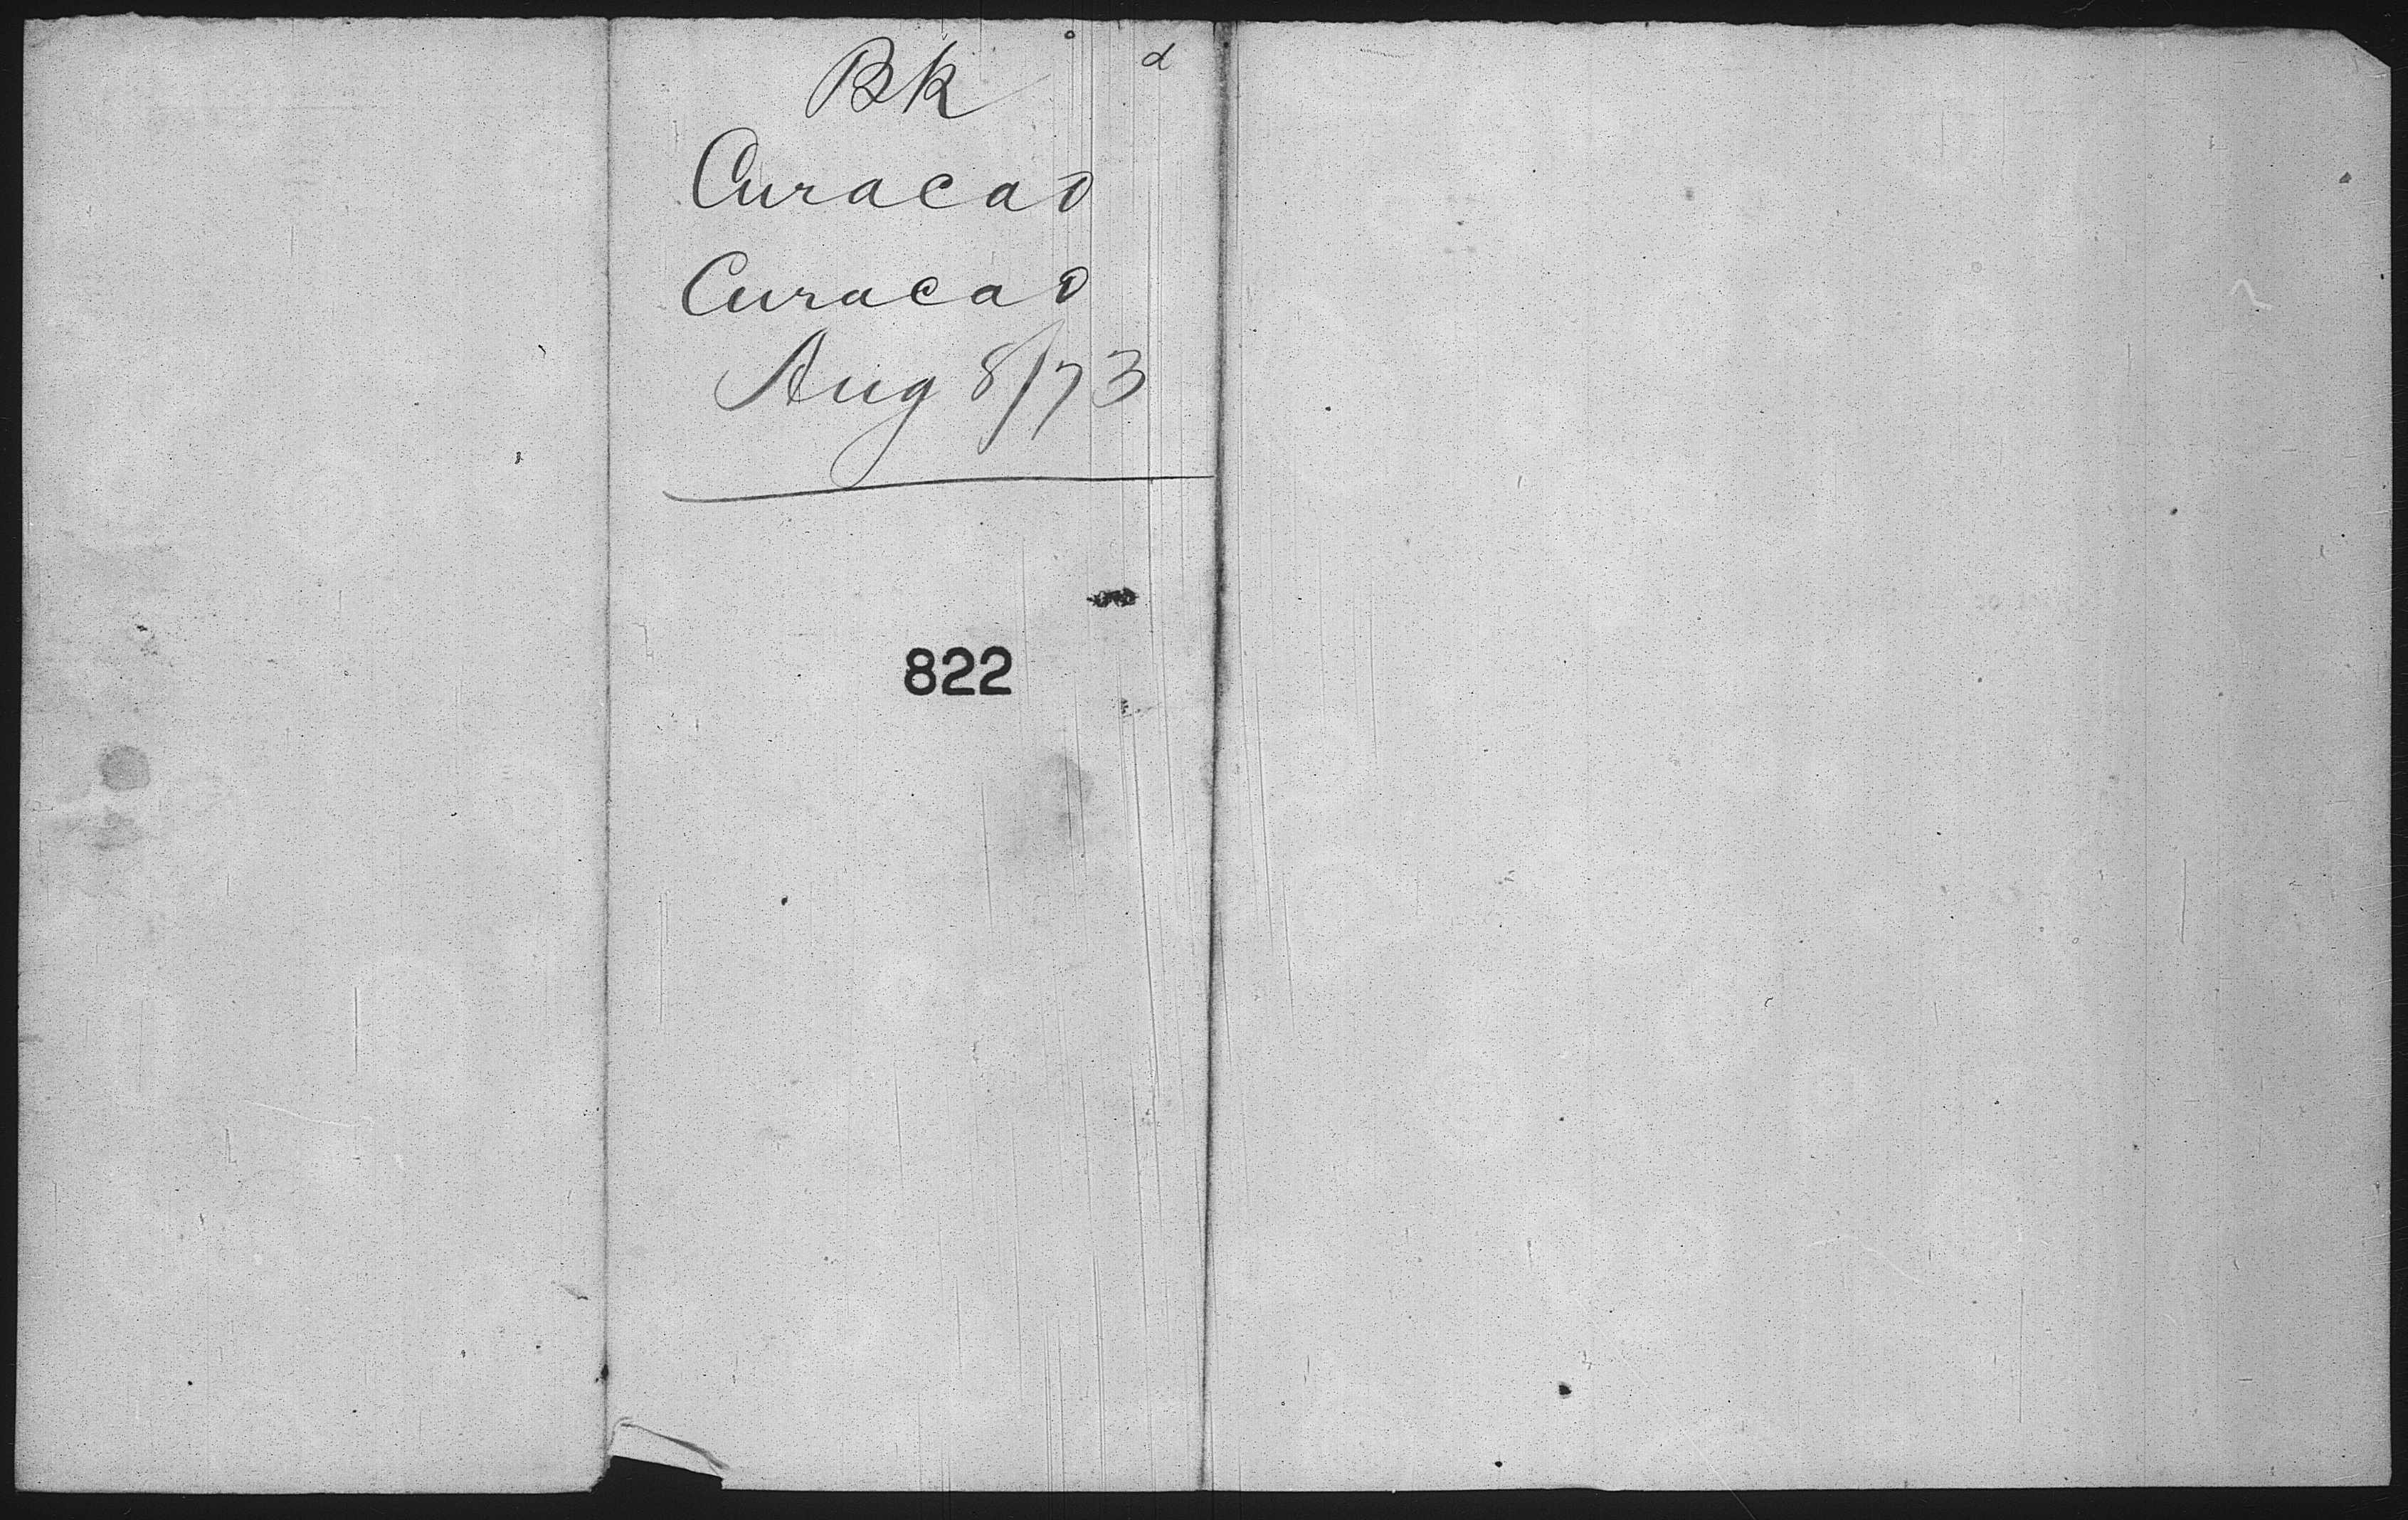 Bk d
Curacao
Curacao
Aug 8/73
822